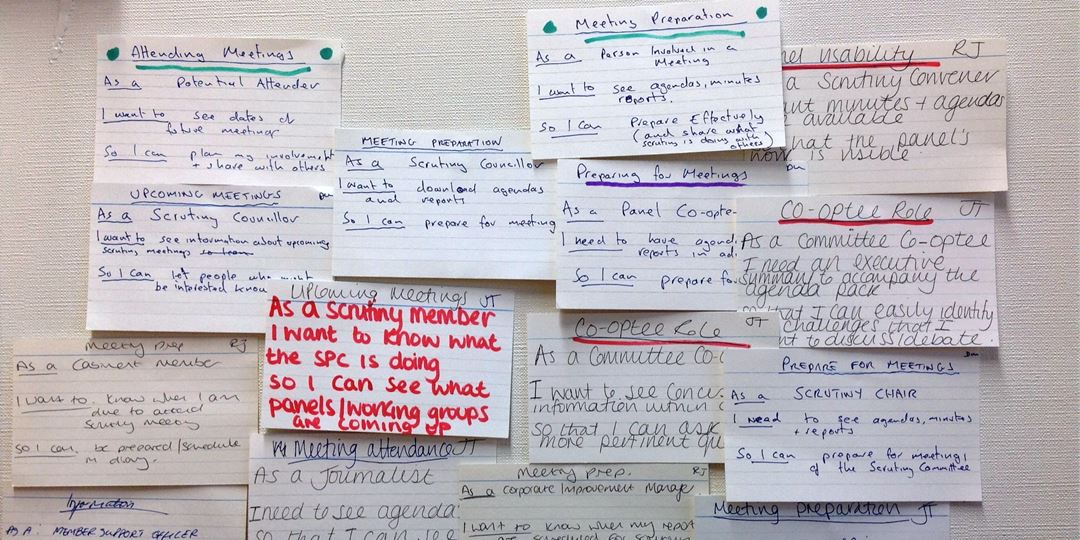 Attending Meetings
As a Potential Attender
I want to see dates of
future meetings
So I can plan my involvement
+ share with others
UPCOMING MEETINGS
As a Scrutiny Councillor
I want to see information about upcoming
scrutiny meetings
So I can let people who might
be interested know
MEETING PREPARATION
As a Scrutiny Councillor
I want to download agendas
and reports
So I can prepare for meeting
Meeting Preparation
As a Person Involved in a
Meeting
I want to see agendas, minutes
reports.
So I Can Prepare Effectively
(and share what
scrutiny is doing with
others)
usability RJ
a Scrutiny Convener
minutes + agendas
available
hat the panel's
is visible
Preparing for Meetings
As a Panel Co-opte
I need to have agend
reports in ad
So I can prepare fo
CO-OPTEE ROLE JT
As a committee Co-optee
I need an executive
summary to acompany the
agenda pack
so that I can easily identify
challenges that I
to discuss/debate.
Upcoming Meetings JT
As a scrutiny member
I want to know what
the SPC is doing
so I can see what
panels/working groups
are coming up
CO-OPTEE ROLE JT
As a Committee Co-
I want to see Conc
information within
so that I can ask
more pertinent qu
PREPARE FOR MEETINGS
As a SCRUTINY CHAIR
I need to see agendas, minutes
+ reports
So I can prepare for meetings
of the Scrutiny Committee
Meeting prep RJ
As a Cabinet member
I want to know when I am
due to attend
Scrutiny meeting
So I can be prepared/schedule
in diary.
Meeting attendance JT
As a Journalist
I need to see agenda
so that I can see
Meeting prep. RJ
As a Corporate Improvement Manager
I want to know when my report
scheduled for
Information
AS A MEMBER SUPPORT OFFICER
Meeting preparation JT